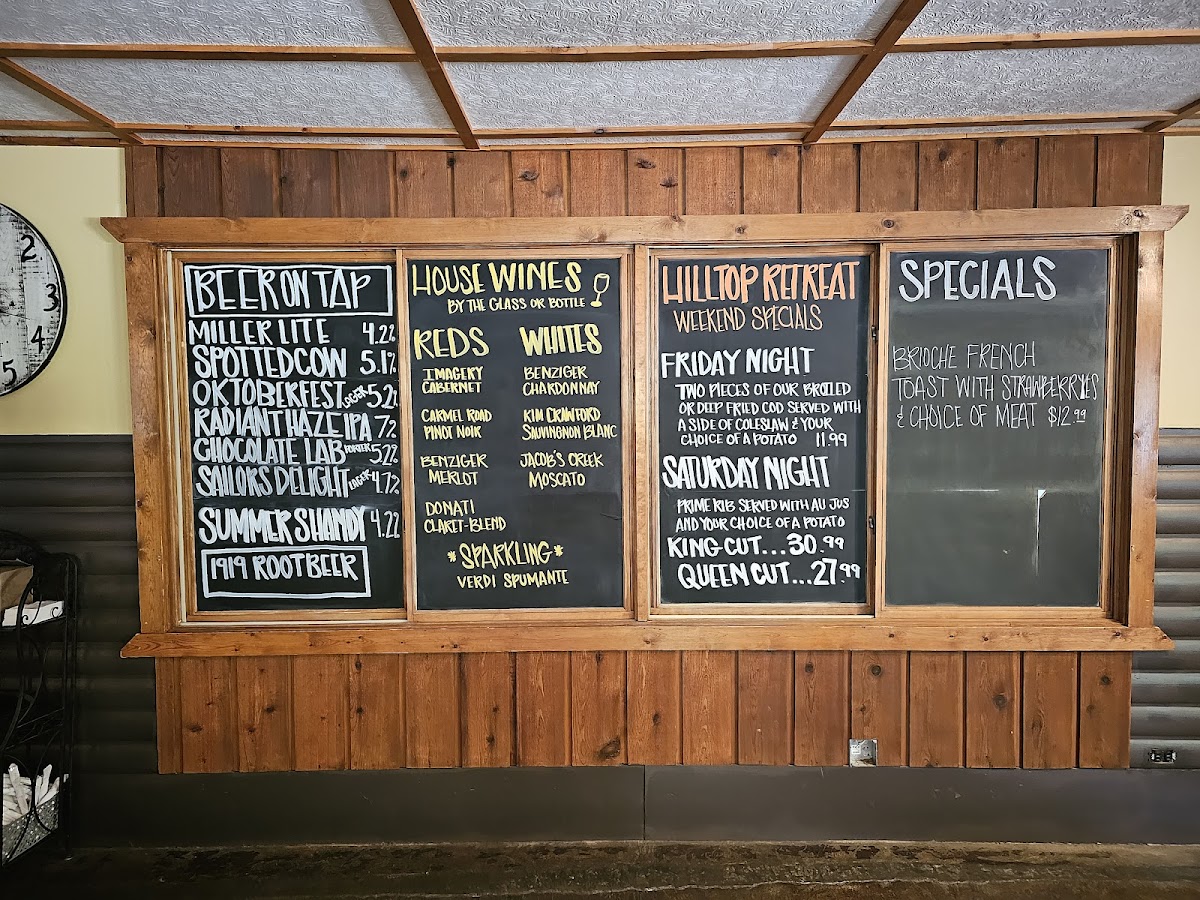 BEER ON TAP
MILLER LITE 4.2%
SPOTTED COW 5.1%
OKTOBERFEST LAGER 5.2%
RADIANT HAZE IPA 7%
CHOCOLATE LAB PORTER 5.2%
SAILORS DELIGHT LAGER 4.7%
SUMMER SHANDY 4.2%
1919 ROOTBEER
HOUSE WINES
BY THE GLASS OR BOTTLE
REDS
IMAGERY
CABERNET
CARMEL ROAD
PINOT NOIR
BENZIGER
MERLOT
DONATI
CLARET-BLEND
WHITES
BENZIGER
CHARDONNAY
KIM CRAWFORD
SAUVINGNON BLANC
JACOB'S CREEK
MOSCATO
*SPARKLING*
VERDI SPUMANTE
HILLTOP RETREAT
WEEKEND SPECIALS
FRIDAY NIGHT
TWO PIECES OF OUR BROILED
OR DEEP FRIED COD SERVED WITH
A SIDE OF COLESLAW & YOUR
CHOICE OF A POTATO 11.99
SATURDAY NIGHT
PRIME RIB SERVED WITH AU JUS
AND YOUR CHOICE OF A POTATO
KING CUT...30.99
QUEEN CUT...27.99
SPECIALS
BRIOCHE FRENCH
TOAST WITH STRAWBERRYES
& CHOICE OF MEAT $12.99
2
3
4
5